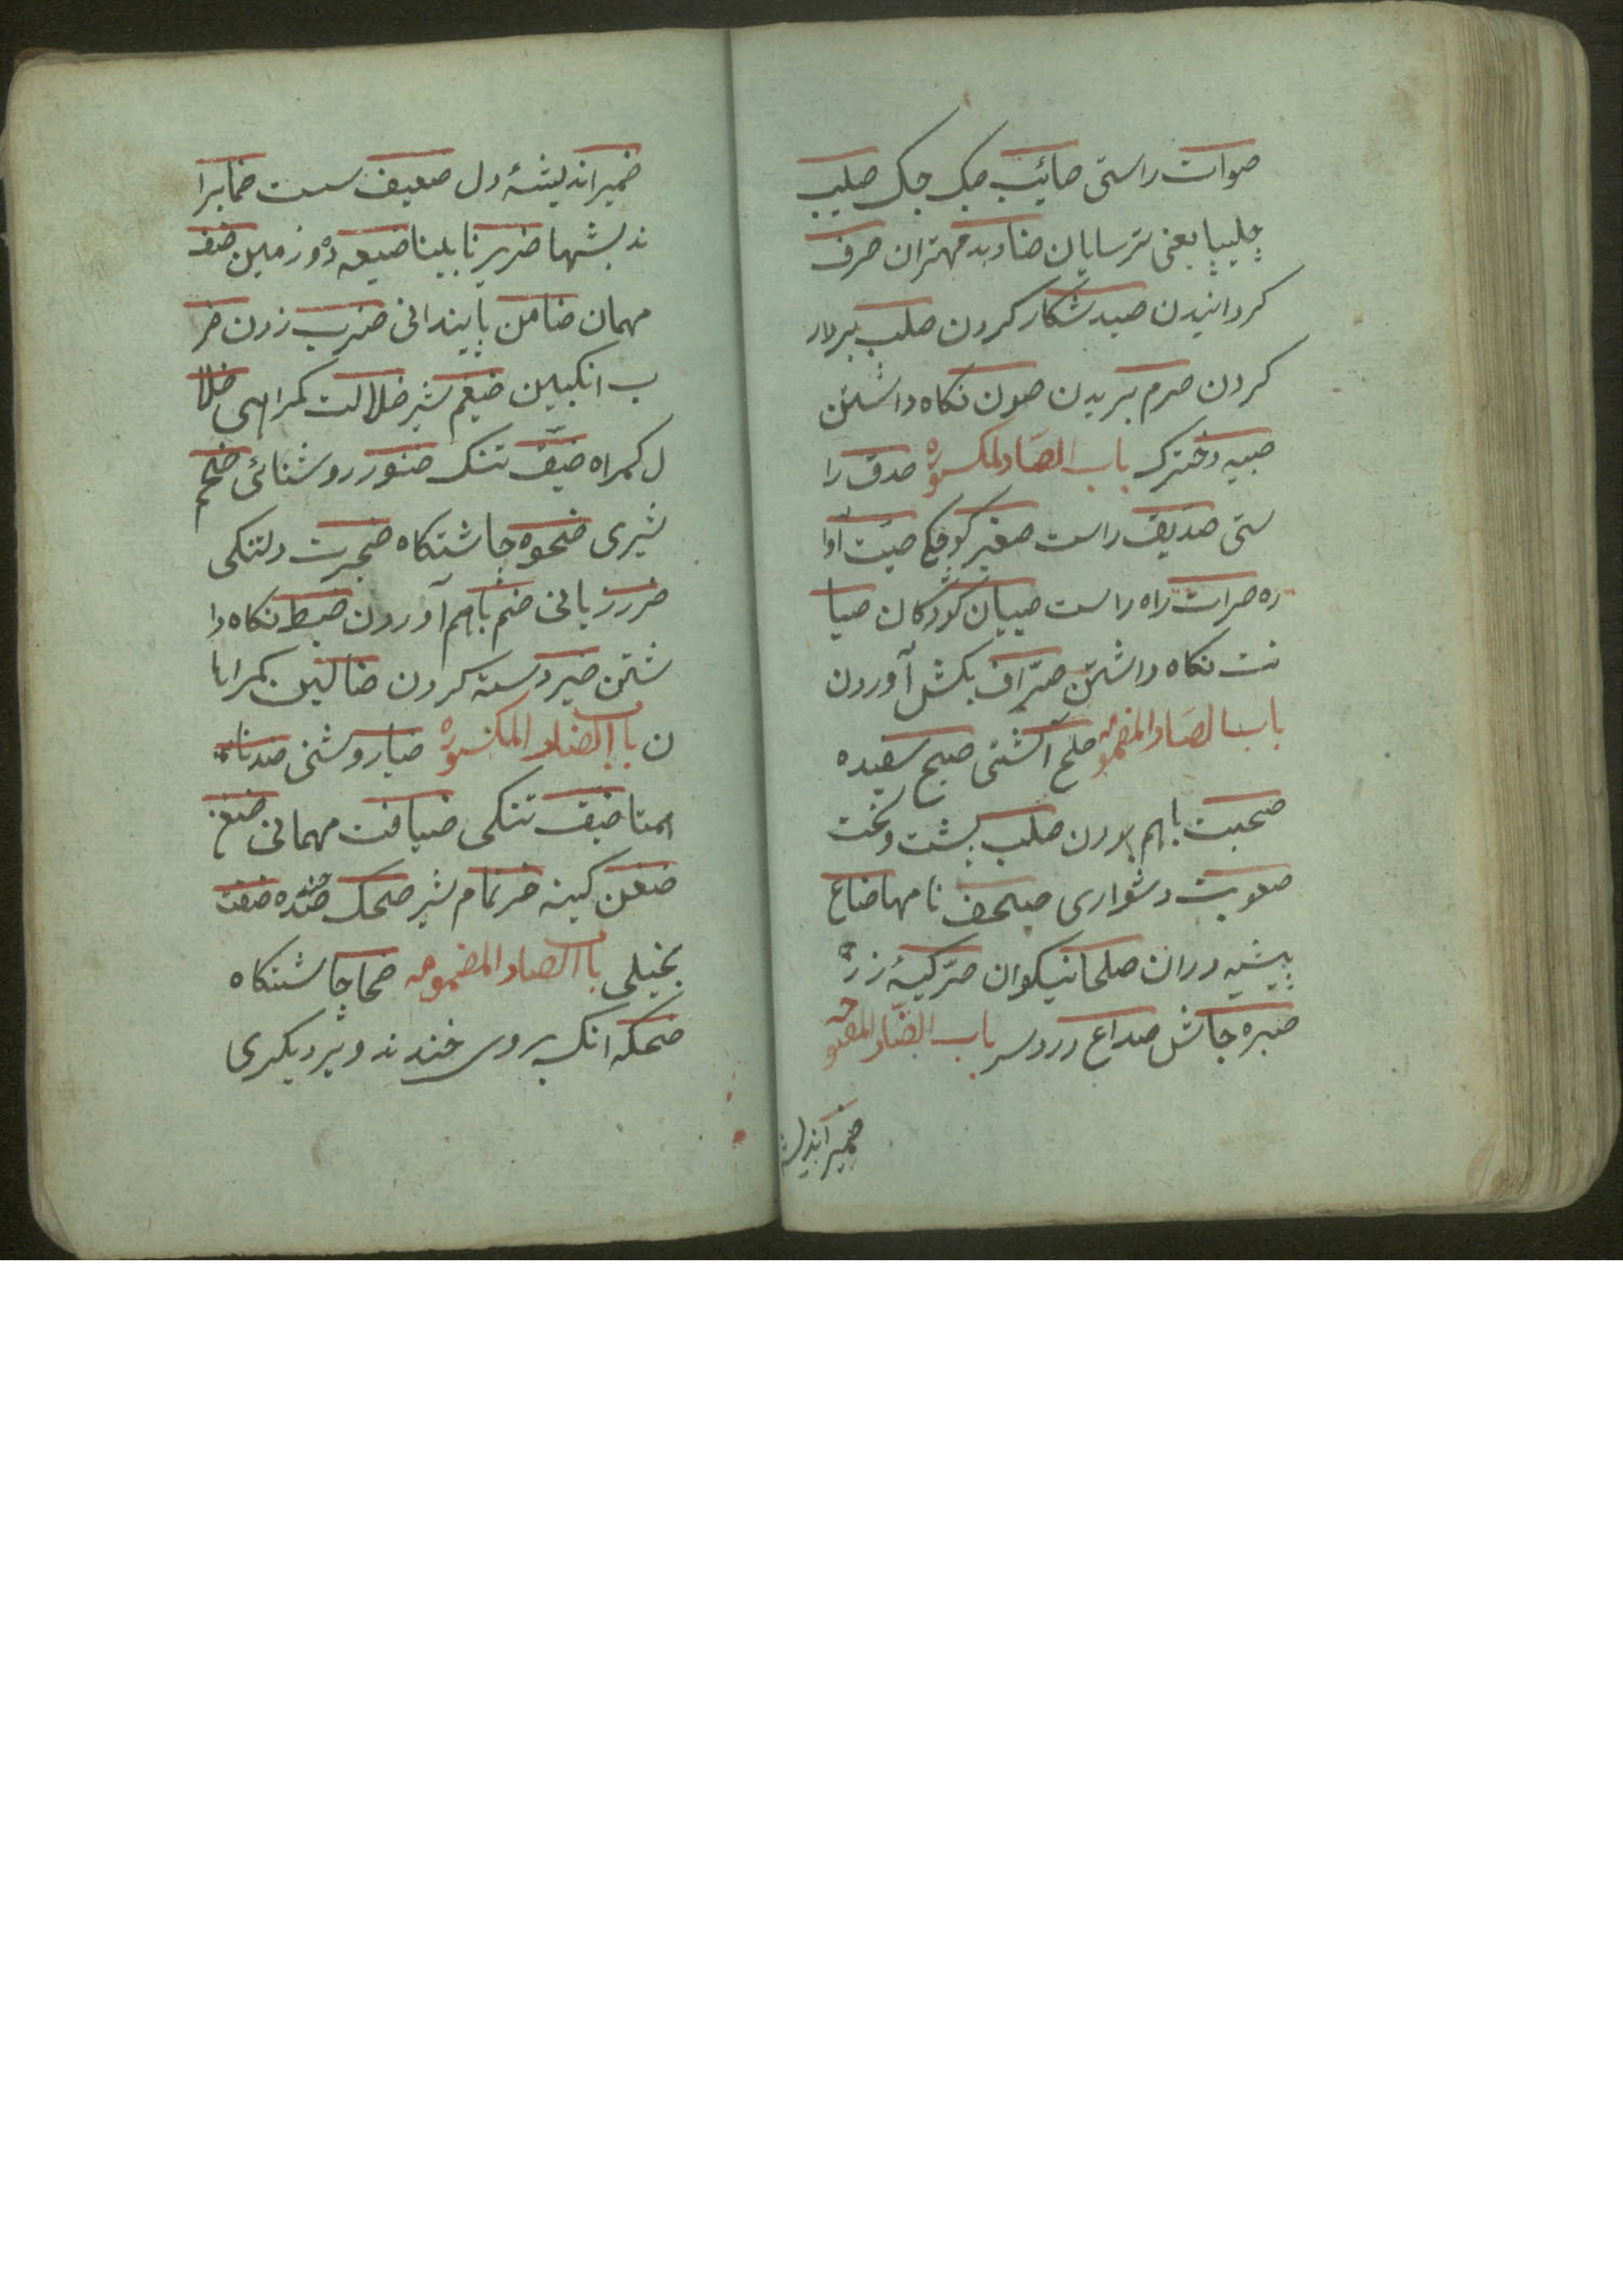 صوات راستی صائب چک چک صلیب
چلیپا یعنی ترسایان صنادید مهتران صرف
کردانیدن صید شکار کردن صلب بردار
کردن صرم بریدن صون نکاه داشتن
صبیه دخترک باب الصاد المکسوره صدق را
ستی صدیق راست صغیر کوچک صیت آوا
زه صرات راه راست صبیان کودکان صیا
نت نکاه داشتن صرّاف بکش آوردن
باب الصاد المضمومه صلح آشتی صبح سفیده
صحبت باهم بودن صلب پشت و سخت
صعوبت دشواری صحف نامها صناع
پیشه وران صلحا نیکوان صرّ کیسهٔ زر
صبره جاش صداع دردسر باب الضّاد المفتوحه
ضمیر اندیشه
ضمیر اندیشهٔ دل ضعیف سست ضمایر ا
ندیشها ضریر نابینا ضیعه ده و زمین ضیف
مهمان ضامن پایندانی ضرب زدن ضر
ب انکبین ضیغم شیر ضلالت کمراهی ضلا
ل کمراه ضیّق تنک ضنور روشنائی ضخم
شیری ضحوه چاشتکاه ضجرت دلتنکی
ضرر زیانی ضم باهم آوردن ضبط نکاه دا
شتن ضیر دسته کردن ضالین کمراها
ن باب الضاد المکسوره ضیا روشنی ضد نا
همتا ضیق تنکی ضیافت مهمانی
ضغن کینه ضرغام شیر ضحک خنده ضنت
بخیلی باب الضاد المضمومه ضحا چاشتکاه
ضحکه انک بروی خندند و بر دیکری